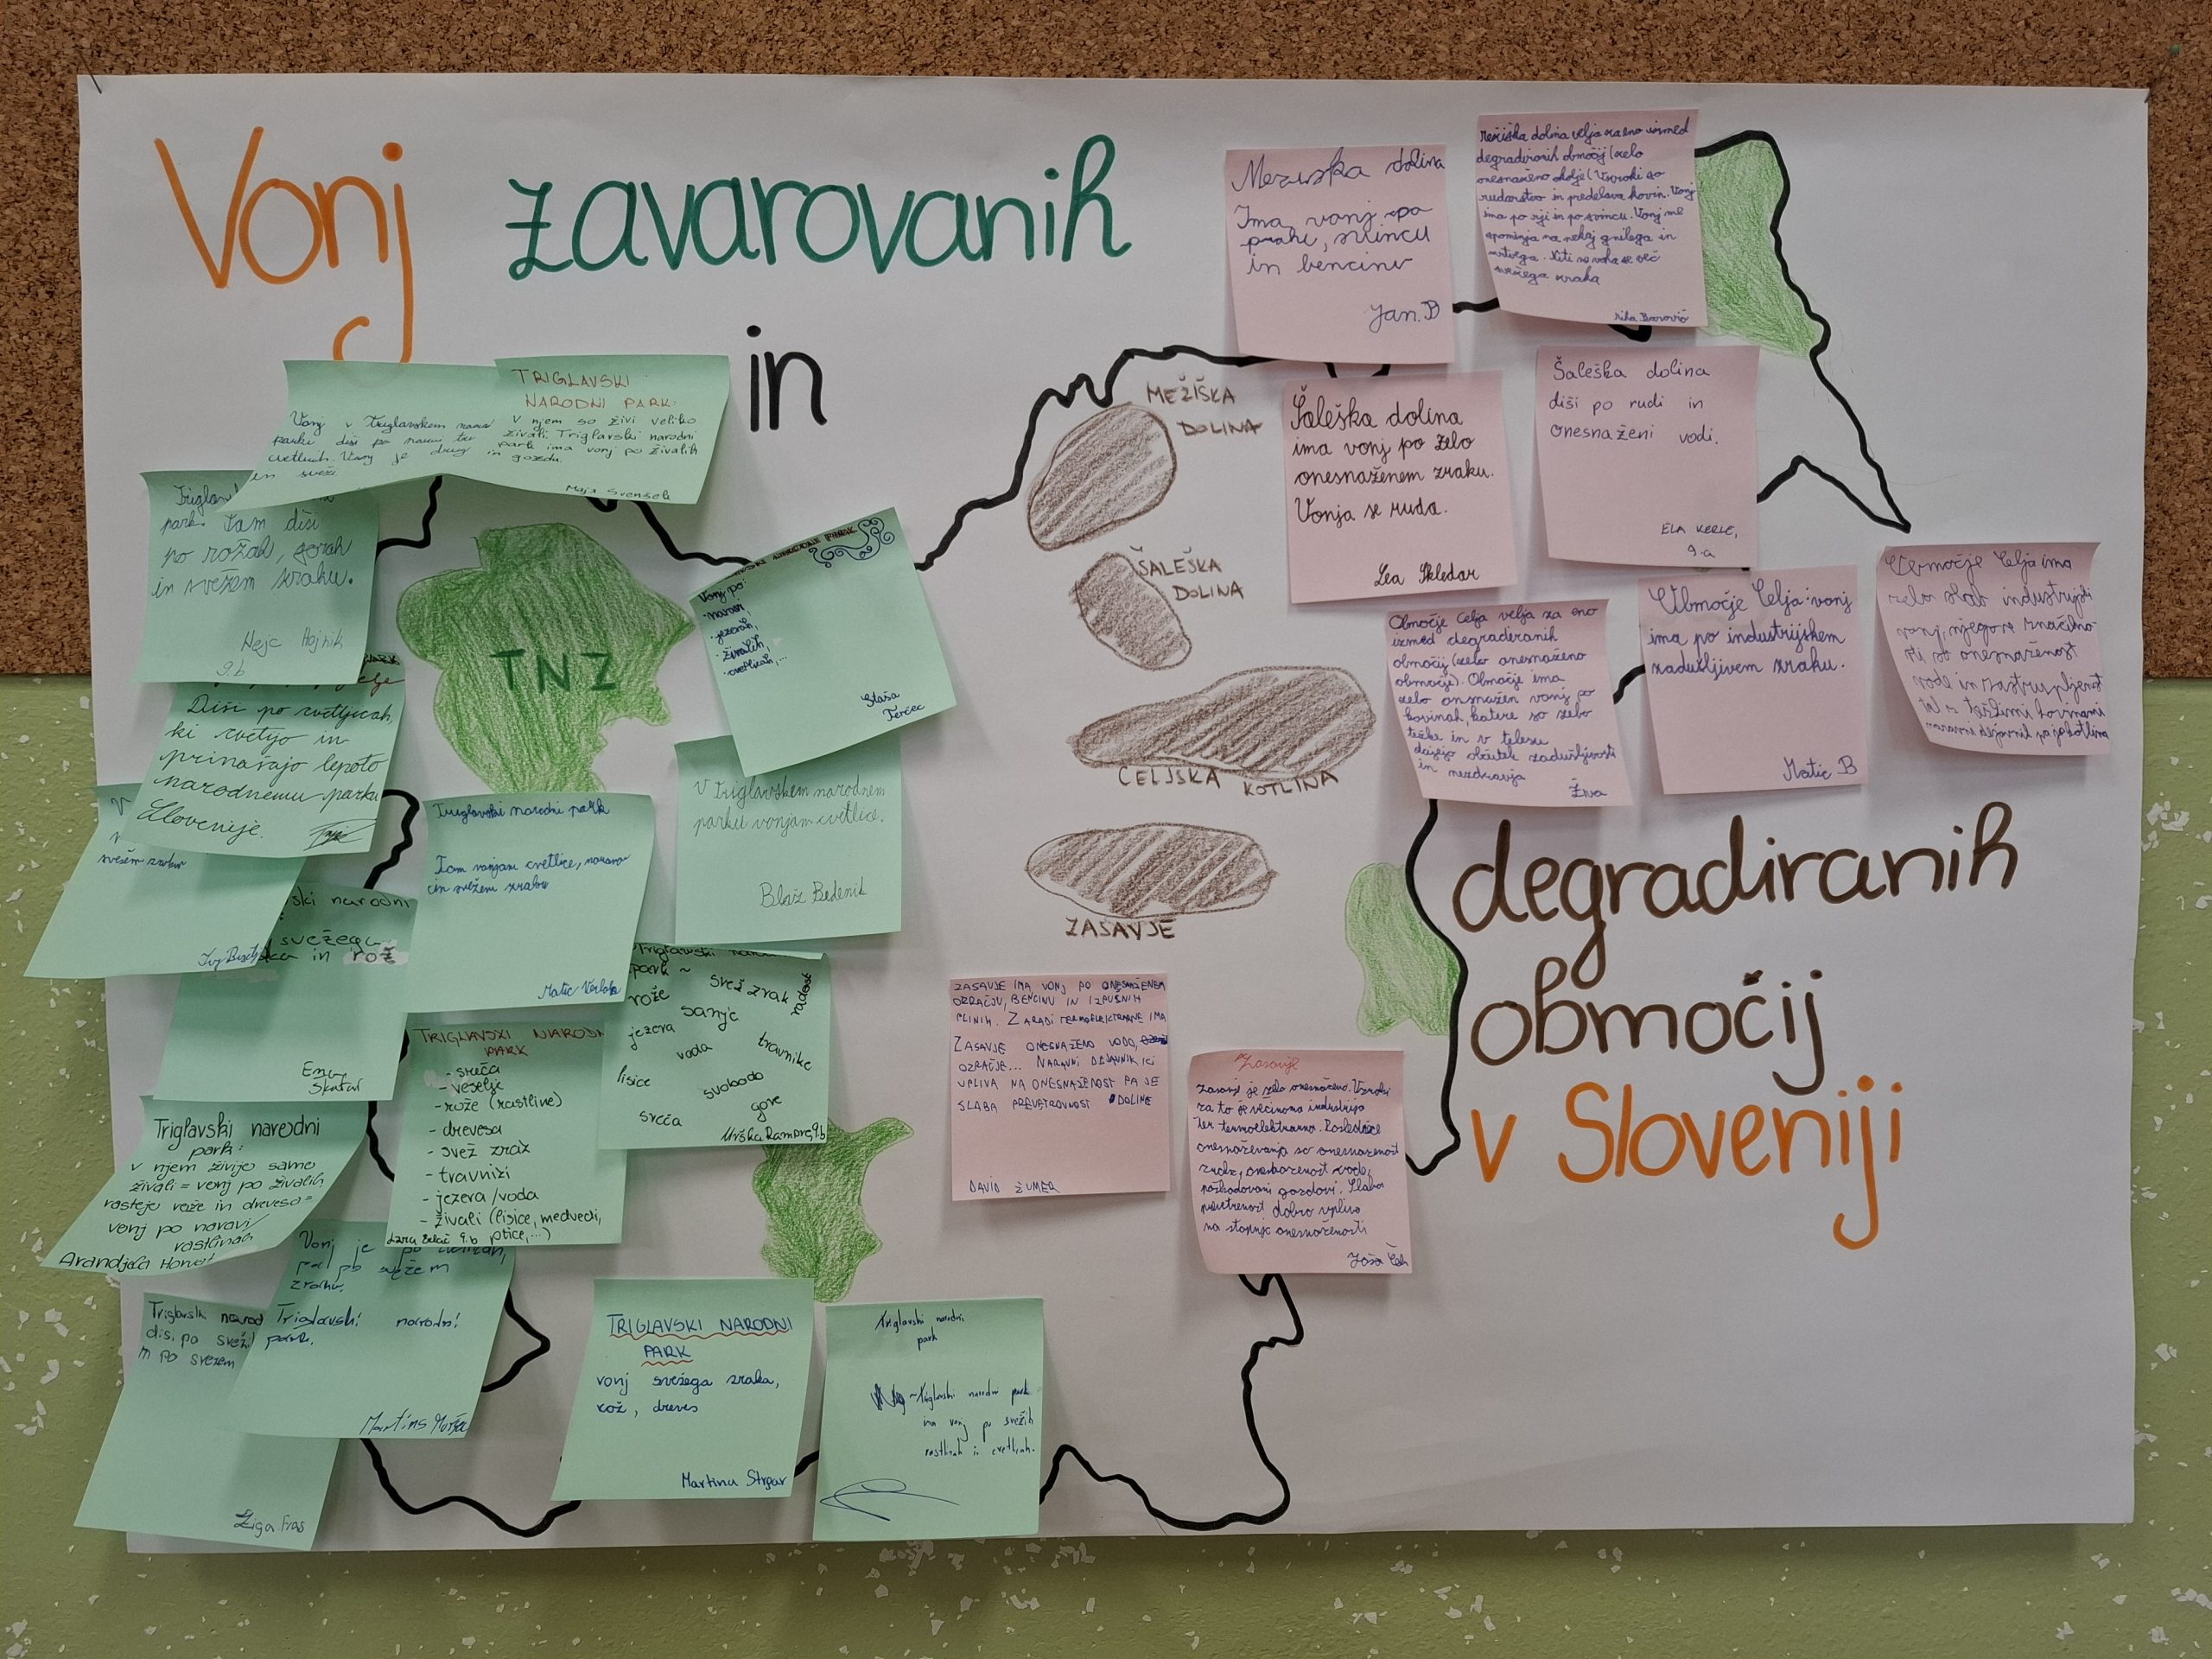 Vonj zavarovanih
in
degradiranih
območij
v Sloveniji
TNZ
MEŽIŠKA
DOLINA
ŠALEŠKA
DOLINA
CELJSKA KOTLINA
ZASAVJE
TRIGLAVSKI
NARODNI PARK:
V njem so živi veliko
živali. Triglavski narodni
park ima vonj po živalih
in gozdu.
Maja
Vonj v Triglavskem
parku diši po naravi ter
cvetlicah. Vonj je drug
in svež.
park. Tam diši
po rožah, gorah
in svežem zraku.
Nejc Hojnik
9.b
Diši po cvetlicah,
ki cvetijo in
prinašajo lepoto
narodnemu parku
Slovenije.
Vonj po:
-naravi,
-jezerih,
-živalih,
-cvetlicah,...
Staša
Ferčec
V Triglavskem narodnem
parku vonjam cvetlice.
Blaž Bedenik
svežem zraku
Triglavski narodni park
Tam vonjam cvetlice, naravo
in svežem zraku
Matic
ski narodni
svežega
in rož
Ema
Škafar
Triglavski
park ~
rože
svež zrak
radost
sanje
jezera
voda
travnike
lisice
svoboda
sreča
gore
TRIGLAVSKI NARODNI
PARK
- sreča
- veselje
- rože (rastline)
- drevesa
- svež zrak
- travniki
- jezera/voda
- živali (lisice, medvedi,
ptice,...)
Triglavski narodni
park:
v njem živijo samo
živali = vonj po živalih
rastejo rože in drevesa =
vonj po naravi/
rastlinah
Vonj je po
svežem
zraku.
Triglavski narodni
park.
Triglavski narod
diši po
in po svežem
Žiga Fras
TRIGLAVSKI NARODNI
PARK
vonj svežega zraka,
rož, dreves
Martina Strgar
Triglavski narodni
park
Triglavski narodni park
ima vonj po svežih
rastlinah in cvetlicah.
Mežiška dolina
Ima vonj po
prahu, svincu
in bencinu
Jan.B
Mežiška dolina velja za eno izmed
degradiranih območij (zelo
onesnaženo okolje( Vzroki so
rudarstvo in predelava kovin. Vonj
ima po rji in po svincu. Vonj me
spominja na nekaj gnilega in
mrtvega. Niti ne voha se več
svežega zraka
Šaleška dolina
ima vonj po zelo
onesnaženem zraku.
Vonja se ruda.
Lea Skledar
Šaleška dolina
diši po rudi in
onesnaženi vodi.
ELA KERLE,
9.a
Območje Celja velja za eno
izmed degradiranih
območij (zelo onesnaženo
območje). Območje ima
zelo onesnažen vonj po
kovinah, katere so zelo
težke in v telesu
dajejo občutek zadušljivosti
in nezdravja
Živa
Območje Celja: vonj
ima po industrijskem
zadušljivem zraku.
Matic B
Območje Celja ima
zelo slab industrijski
vonj, njegove značilno-
sti so onesnaženost
vode in zastrupljenost
tal s težkimi kovinami
naravni dejavnik pa je kotlina
ZASAVJE IMA VONJ PO ONESNAŽENEM
OZRAČJU, BENCINU IN IZPUŠNIH
PLINIH. ZARADI TERMOELEKTRARNE IMA
ZASAVJE ONESNAŽENO VODO,
OZRAČJE... NARAVNI DEJAVNIK KI
VPLIVA NA ONESNAŽENOST PA JE
SLABA PREVETROVNOST DOLINE
DAVID ŽUMER
Zasavje
Zasavje je zelo onesnaženo. Vzroki
za to je večinoma industrija
ter termoelektrarna. Posledice
onesnaževanja so onesnaženost
zraka, onesnaženost vode,
poškodovani gozdovi. Slaba
prevetrenost dobro vpliva
na stopnjo onesnaženosti